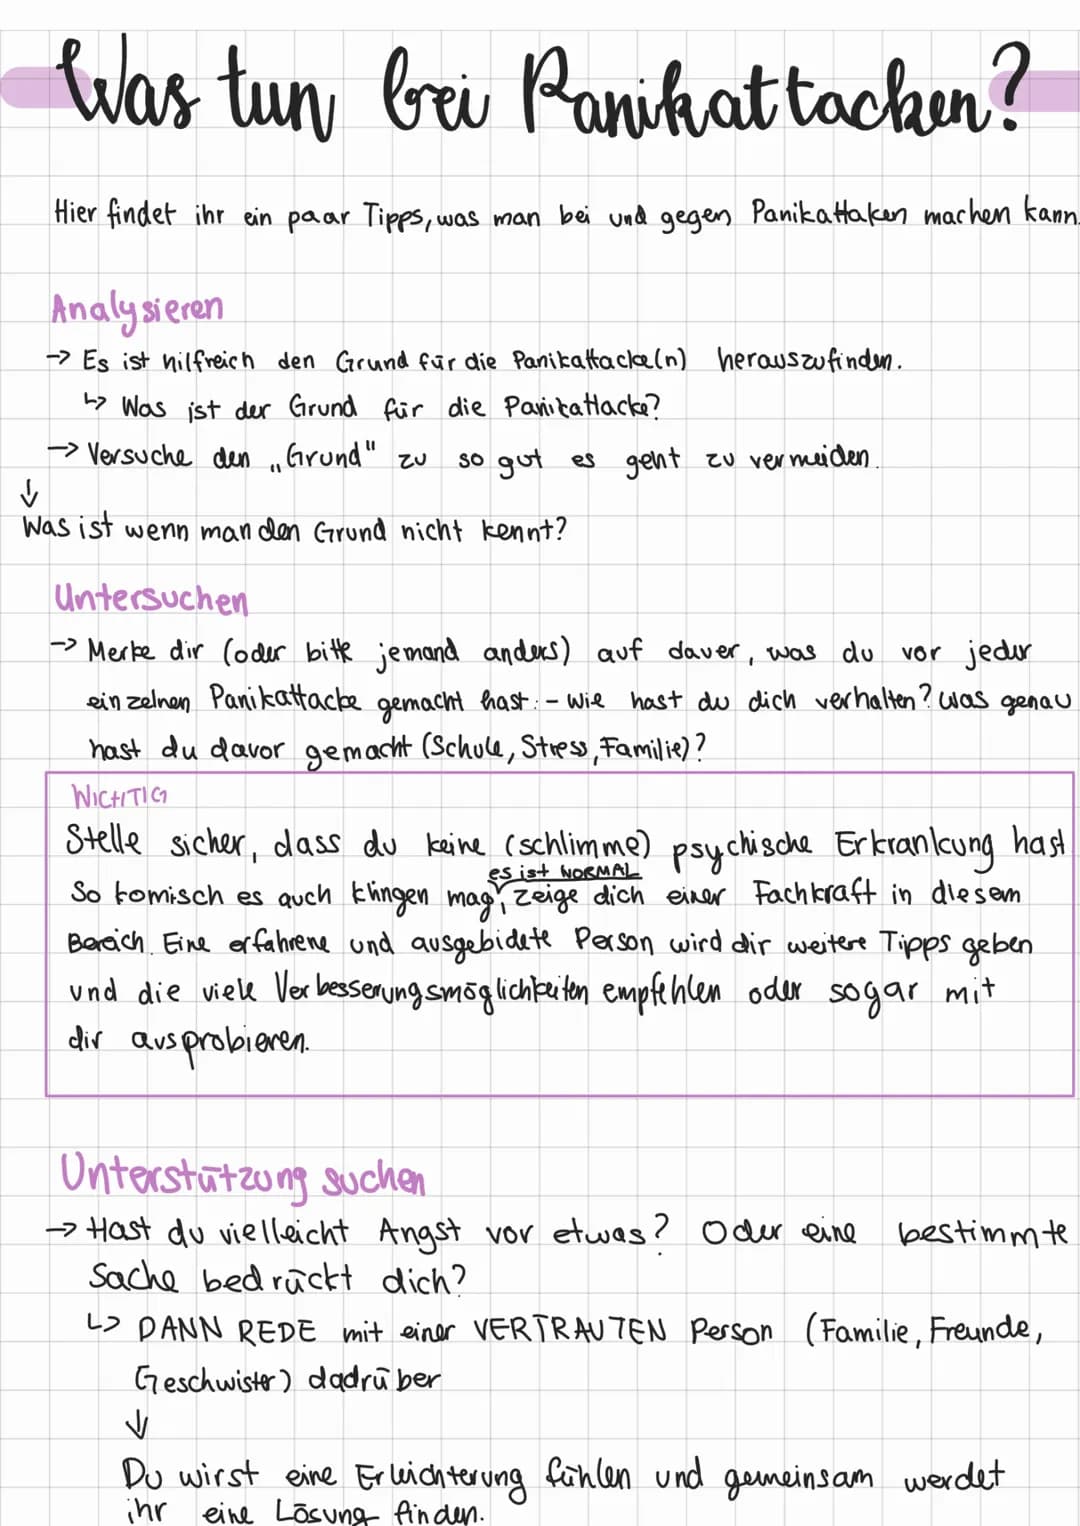 Was tun bei Panikattacken?
Hier findet ihr ein paar Tipps, was man bei und gegen Panikattaken machen kann.
Analysieren
→ Es ist hilfreich den Grund für die Panikattacke(n) herauszufinden.
↳ Was ist der Grund für die Panikattacke?
→ Versuche den „Grund" zu so gut es geht zu vermeiden.
↓
Was ist wenn man den Grund nicht kennt?
Untersuchen
→ Merke dir (oder bitte jemand anders) auf dauer, was du vor jeder
einzelnen Panikattacke gemacht hast: - Wie hast du dich verhalten? Was genau
hast du davor gemacht (Schule, Stress, Familie)?
WICHTIG
Stelle sicher, dass du keine (schlimme) psychische Erkrankung hast.
es ist NORMAL
So komisch es auch klingen mag, zeige dich einer Fachkraft in diesem
Bereich. Eine erfahrene und ausgebidete Person wird dir weitere Tipps geben
und die viele Verbesserungsmöglichkeiten empfehlen oder sogar mit
dir ausprobieren.
Unterstützung suchen
→ Hast du vielleicht Angst vor etwas? Oder eine bestimmte
Sache bedrückt dich?
↳ DANN REDE mit einer VERTRAUTEN Person (Familie, Freunde,
Geschwister) dadrüber
↓
Du wirst eine Erleichterung fühlen und gemeinsam werdet
ihr eine Lösung finden.